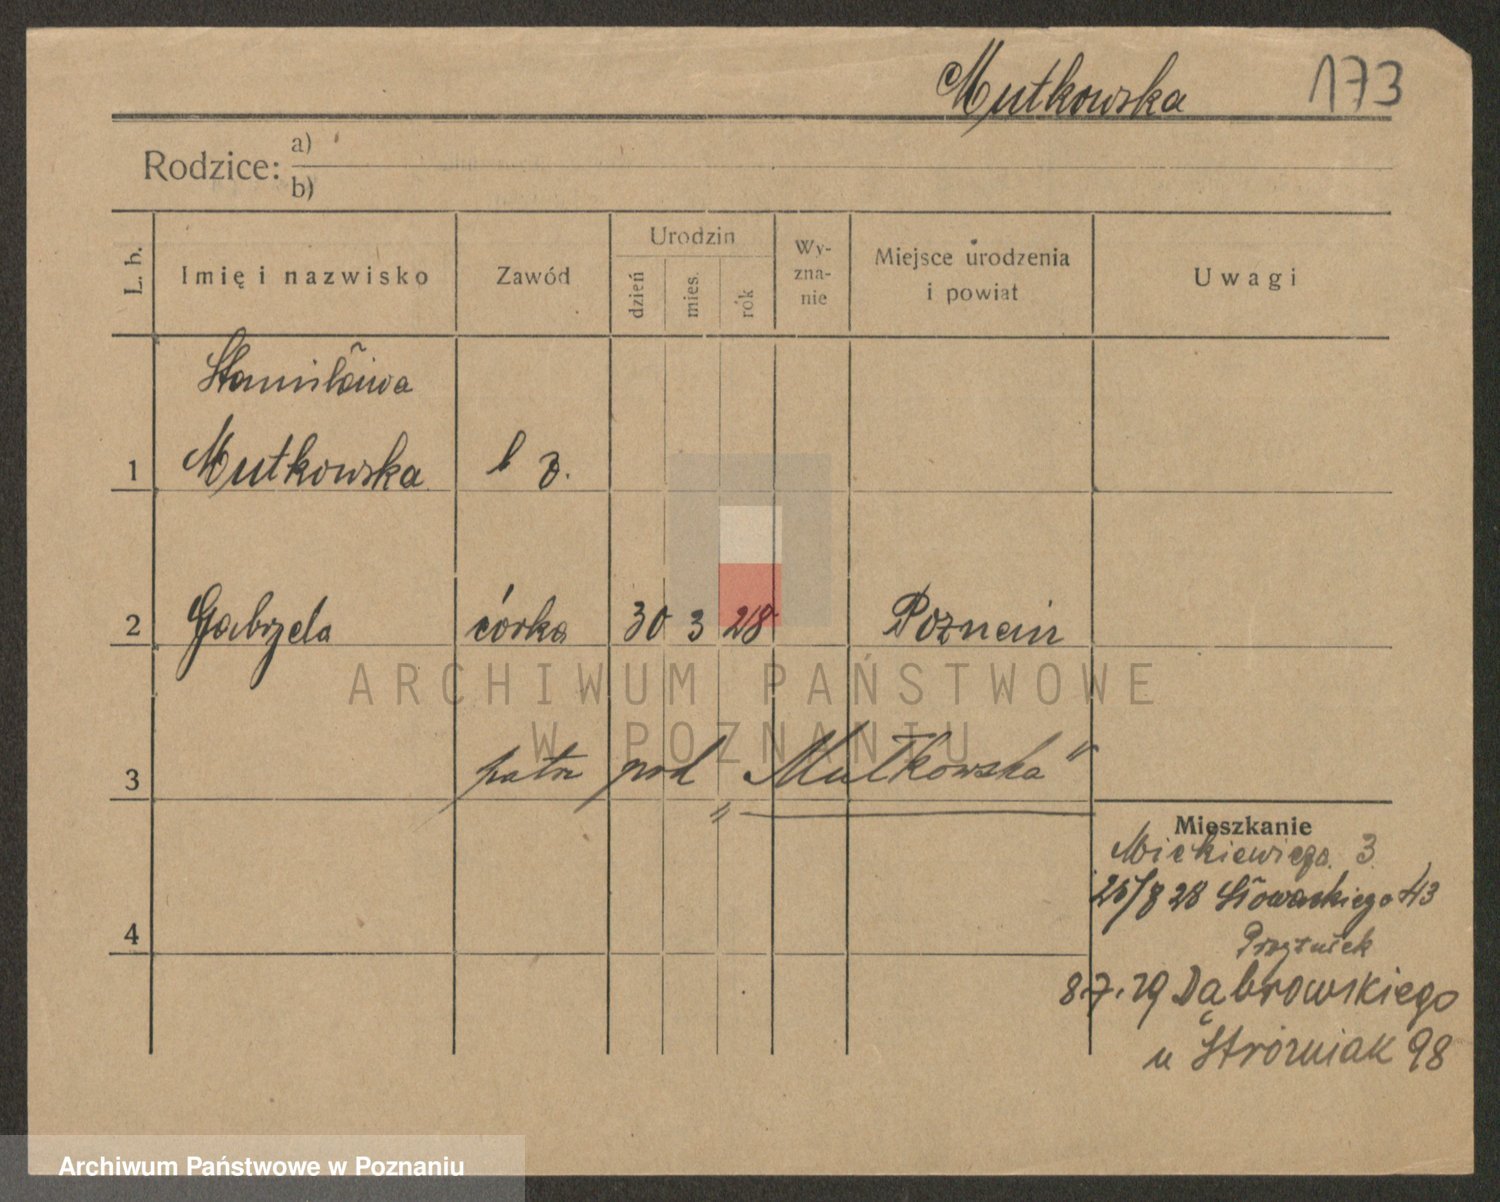 Mutkowska 173
Rodzice: a)
b)
L. b.
Imię i nazwisko
Zawód
Urodzin
dzień
mies.
rok
Wy-
zna-
nie
Miejsce urodzenia
i powiat
Uwagi
Stanisława
1 Mutkowska b z.
2 Gabrzela córka 30 3 28 Poznań
ARCHIWUM PAŃSTWOWE
W POZNANIU
3 patrz pod „Mułkowska"
Mieszkanie
Mickiewicza. 3.
25/8 28 Słowackiego 43
4
8.7.29 Dąbrowskiego
u Stróżniak 98
Archiwum Państwowe w Poznaniu